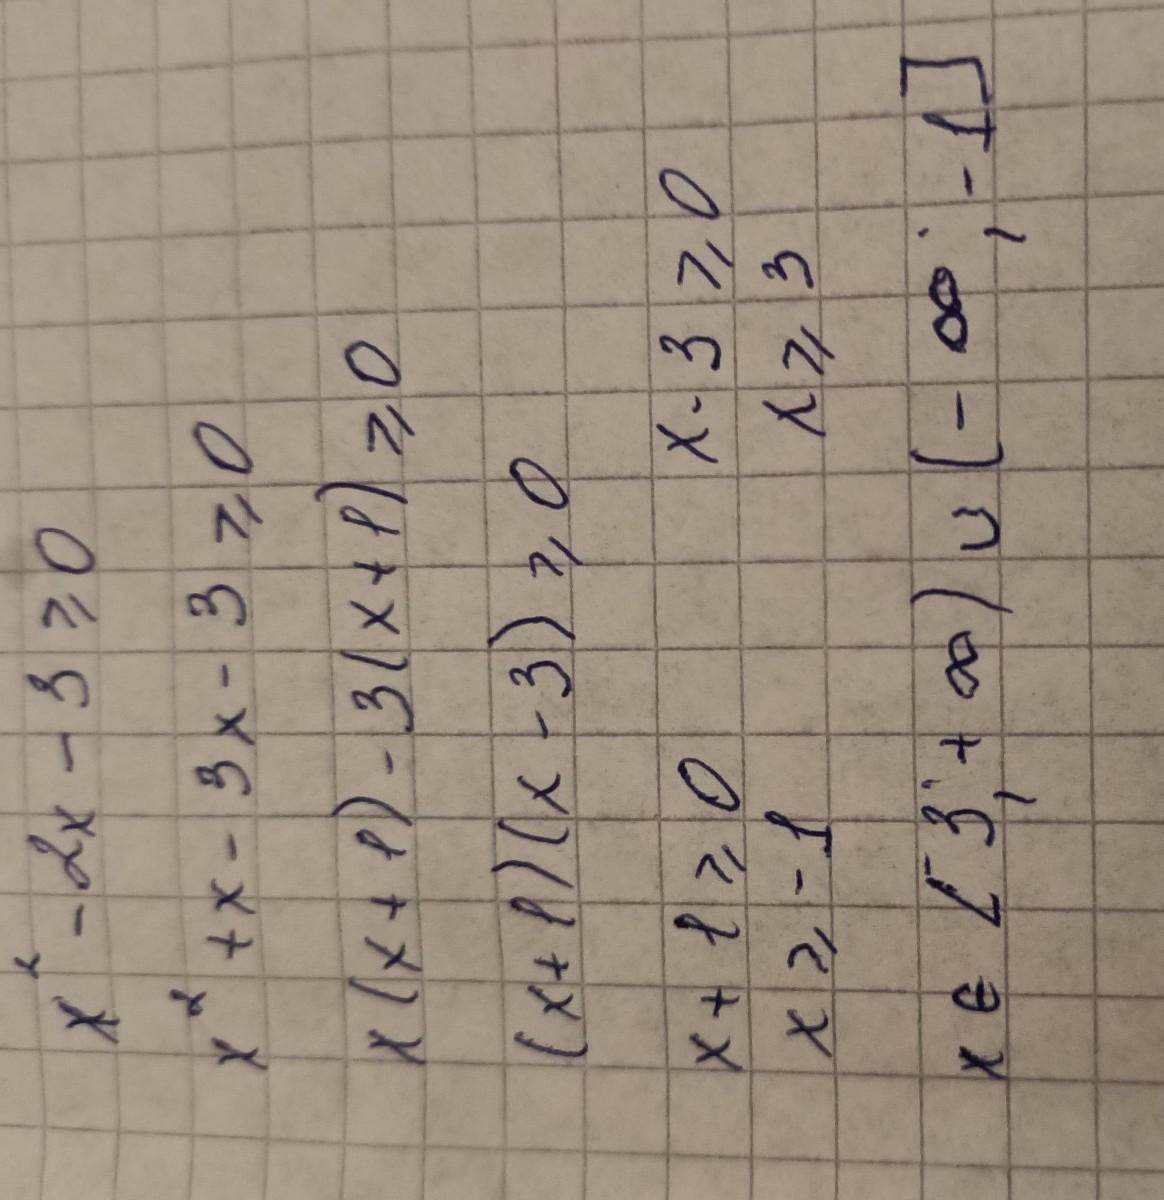 x² - 2x - 3 ⩾ 0
x² + x - 3x - 3 ⩾ 0
x(x+1) - 3(x+1) ⩾ 0
(x+1)(x-3) ⩾ 0
x + 1 ⩾ 0 x - 3 ⩾ 0
x ⩾ -1 x ⩾ 3
x ∈ [3; +∞) ∪ (-∞; -1]